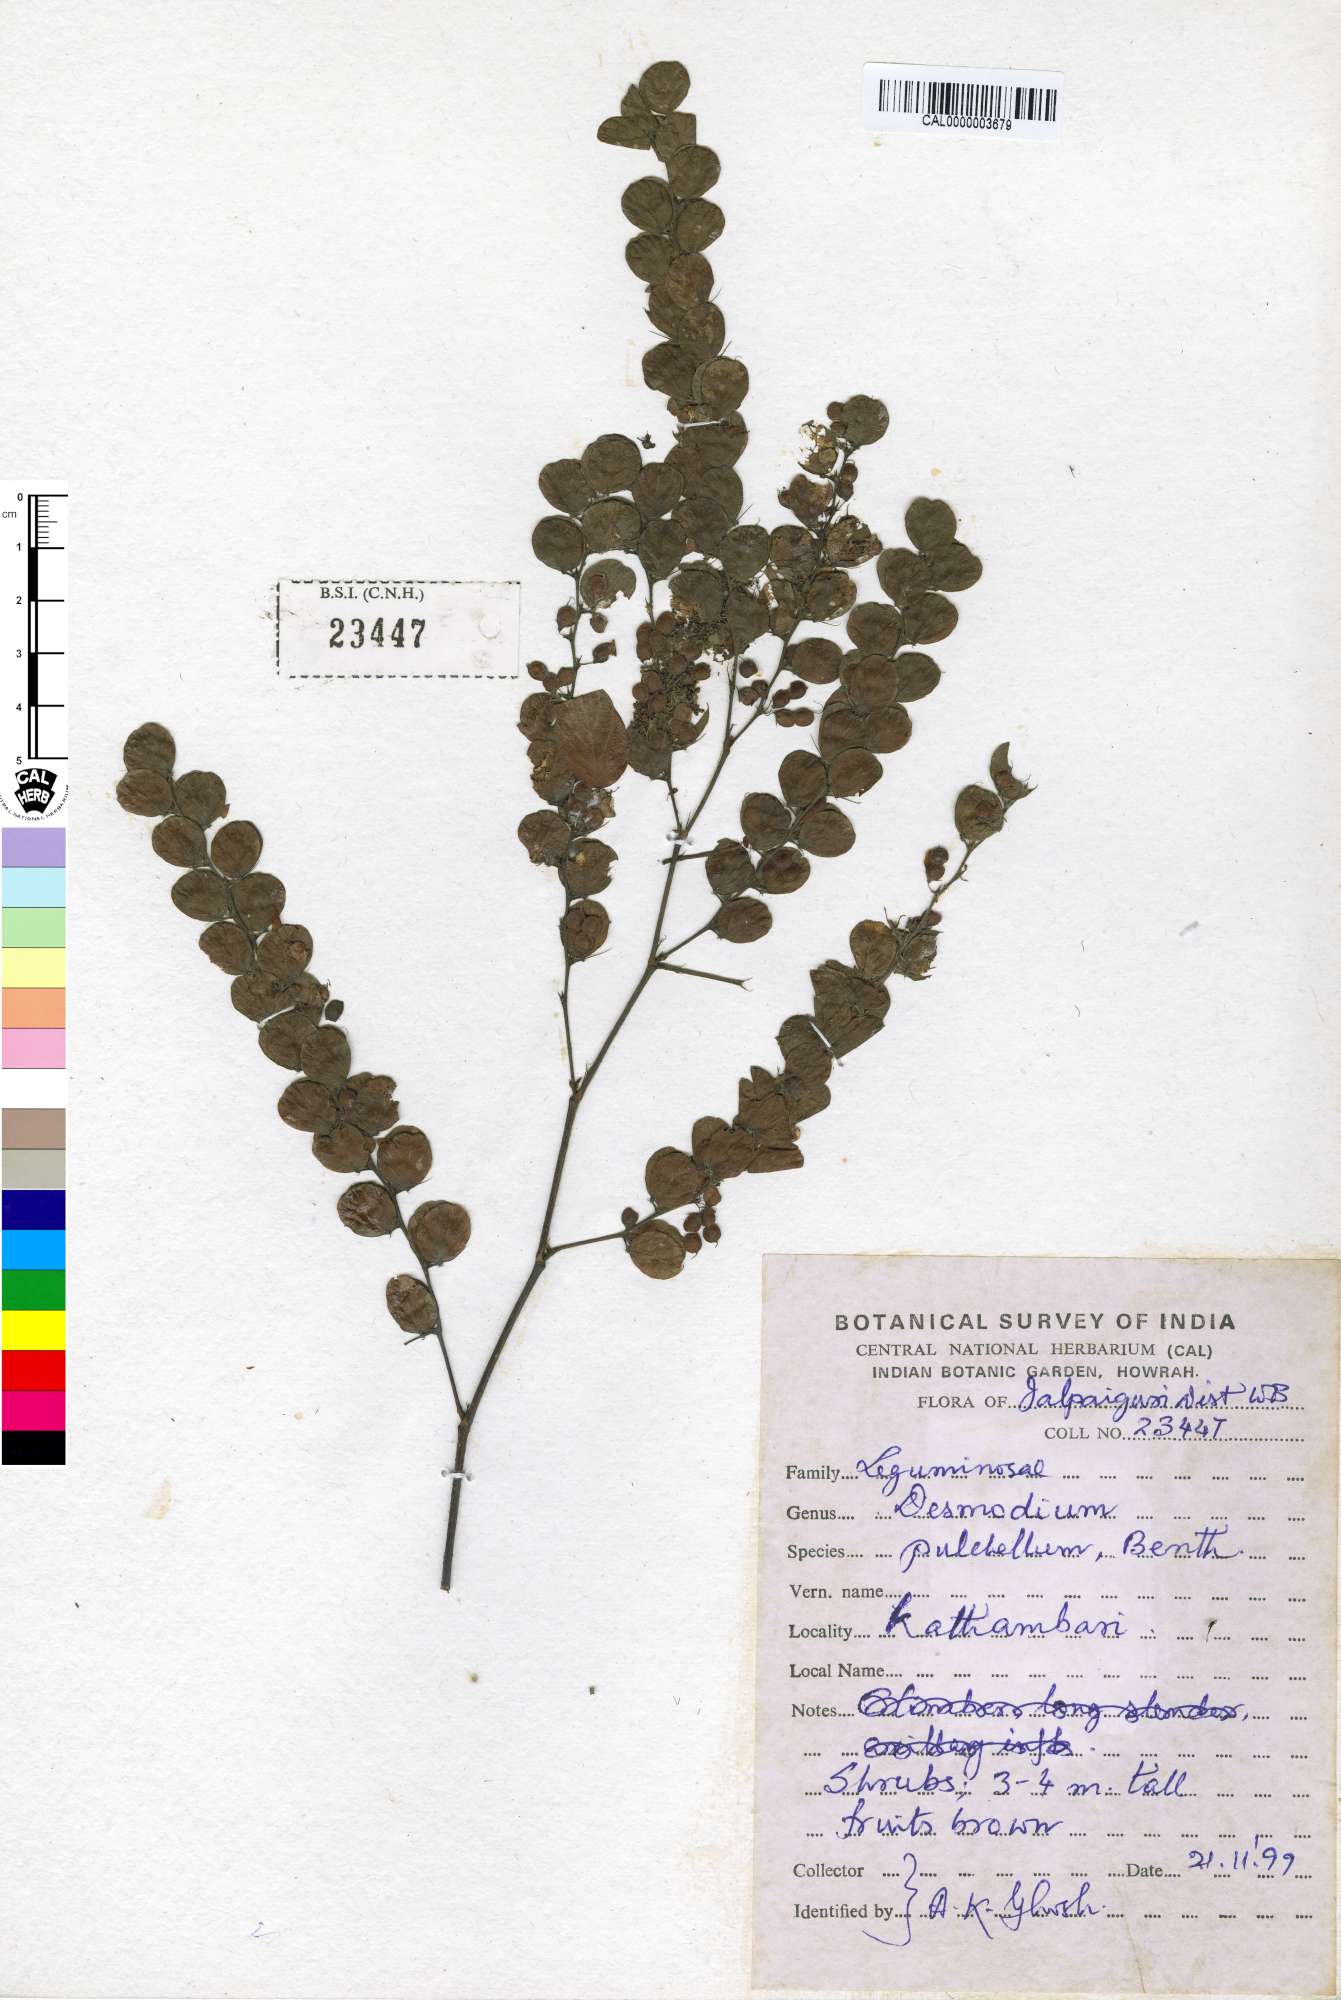 CAL0000003679
B.S.I. (C.N.H.)
23447
0
cm
1
2
3
4
5
CAL
HERB
CENTRAL NATIONAL HERBARIUM
BOTANICAL SURVEY OF INDIA
CENTRAL NATIONAL HERBARIUM (CAL)
INDIAN BOTANIC GARDEN, HOWRAH.
FLORA OF Jalpaiguri Dist WB
COLL NO. 23447
Family Leguminosae
Genus Desmodium
Species pulchellum, Benth.
Vern. name
Locality Kathambari
Local Name
Notes Climbers long slender,
Shrubs; 3-4 m. tall
fruits brown
Collector Date 21.11.99
Identified by A.K. Ghosh.